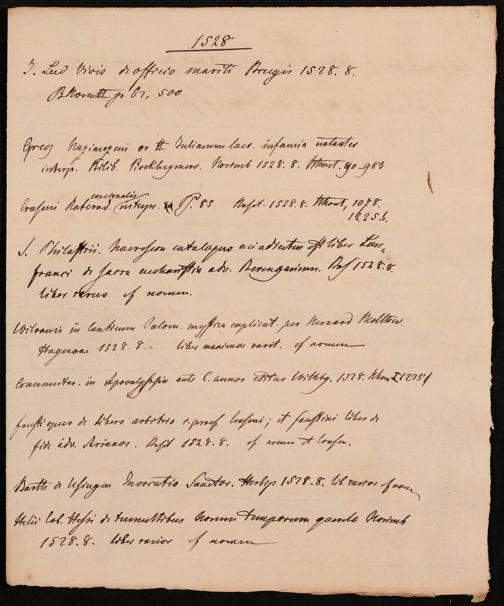 53
1528
J. Lud Vivis de officio mariti Brugis 1528. 8.
500
Greg Nazianzeni or II Julianum infamia notantes
interp. Bilib. Pirckheymero. Norimb 1528. 8. 90_983
Erasmi concionalis interpr. in Ps. 85 Basil. 1528. 8. 1078.
1225b.
S. Philastrii. haereseon catalogus cui adiectus est liber Lan-
franci de sacra eucharistia adv. Berengarium. Bas 1528. 8.
liber rarus cf nomen.
Wilramis in canticum Salom. mystica explicat. per Menrard Molther.
Hagenoae 1528. 8. liber maximae rarit. cf nomen
Commentar. in Apocalypsin ante C. annos editus Witbg. 1528.
Faustiquus de libero arbitrio c. praef Erasmi; et faustini liber de
fide adv. Arianos. Basil 1528. 8. cf nomen et Erasm.
Barth de Usingen Invocatio Sanctor. Herbip 1528. 8. lib rarior cf nom
Helii Eob. Hessi de tumultibus horum temporum querela Norimb
1528. 8. liber rarior cf nomen